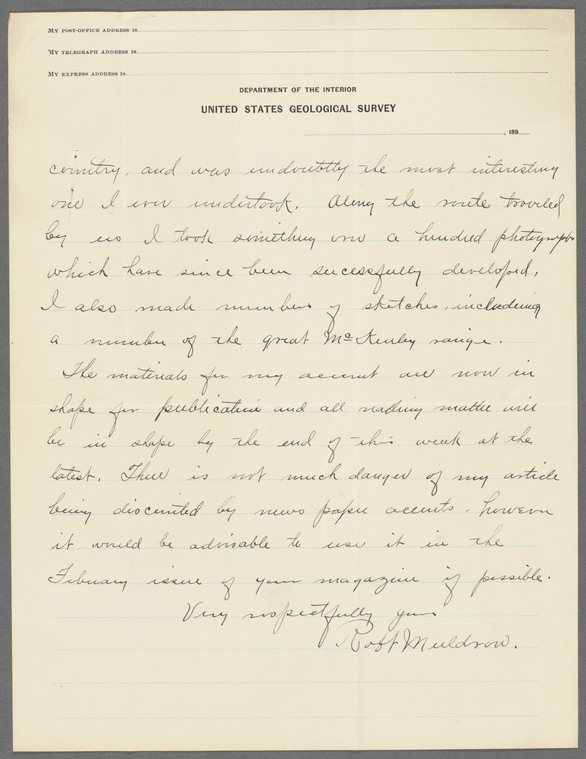 MY POST-OFFICE ADDRESS IS
MY TELEGRAPH ADDRESS IS
MY EXPRESS ADDRESS IS
DEPARTMENT OF THE INTERIOR
UNITED STATES GEOLOGICAL SURVEY
, 189
country, and was undoubttly the most interesting
one I ever undertook. Along the route traveled
by us I took something over a hundred photographs
which have since been sucessfully developed.
I also made number of sketches, including
a number of the great McKinley range.
The materials for my account are now in
shape for publication and all reading matter will
be in shape by the end of this week at the
latest. There is not much danger of my article
being discounted by news paper accounts. however
it would be advisable to use it in the
February issue of your magazine if possible.
Very respectfully yours
Robt Muldrow.